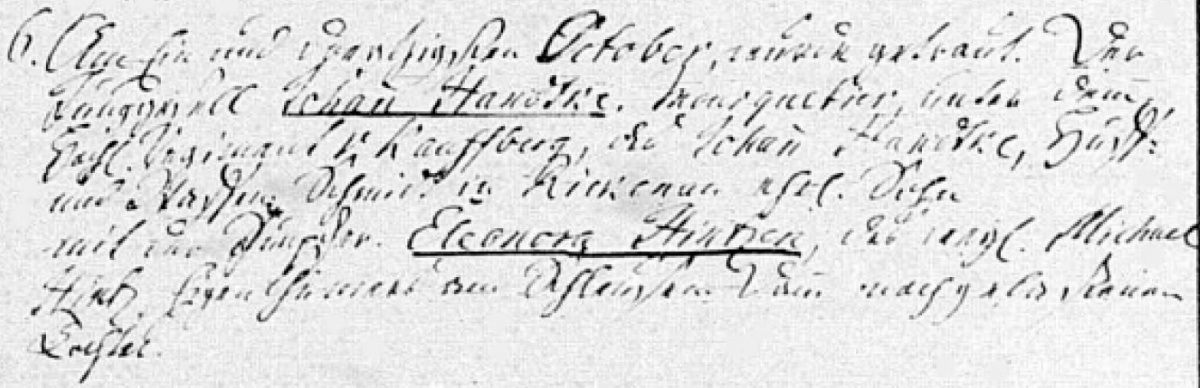 6. Am Ein und zwantzigsten October, wurde getraut. Der
Junggesell Johan Handtke. Mousquetier, unter dem
Hochl. Regiment v. Kauffberg, des Johan Handtke, Huff-
und Waffen Schmidt in Rickenau ehel. Sohn
mit der Jungfer. Eleonora Hintzen, des weyl. Michael
Hintz, Eigenthümers am Damm nachgelassenen
Tochter.